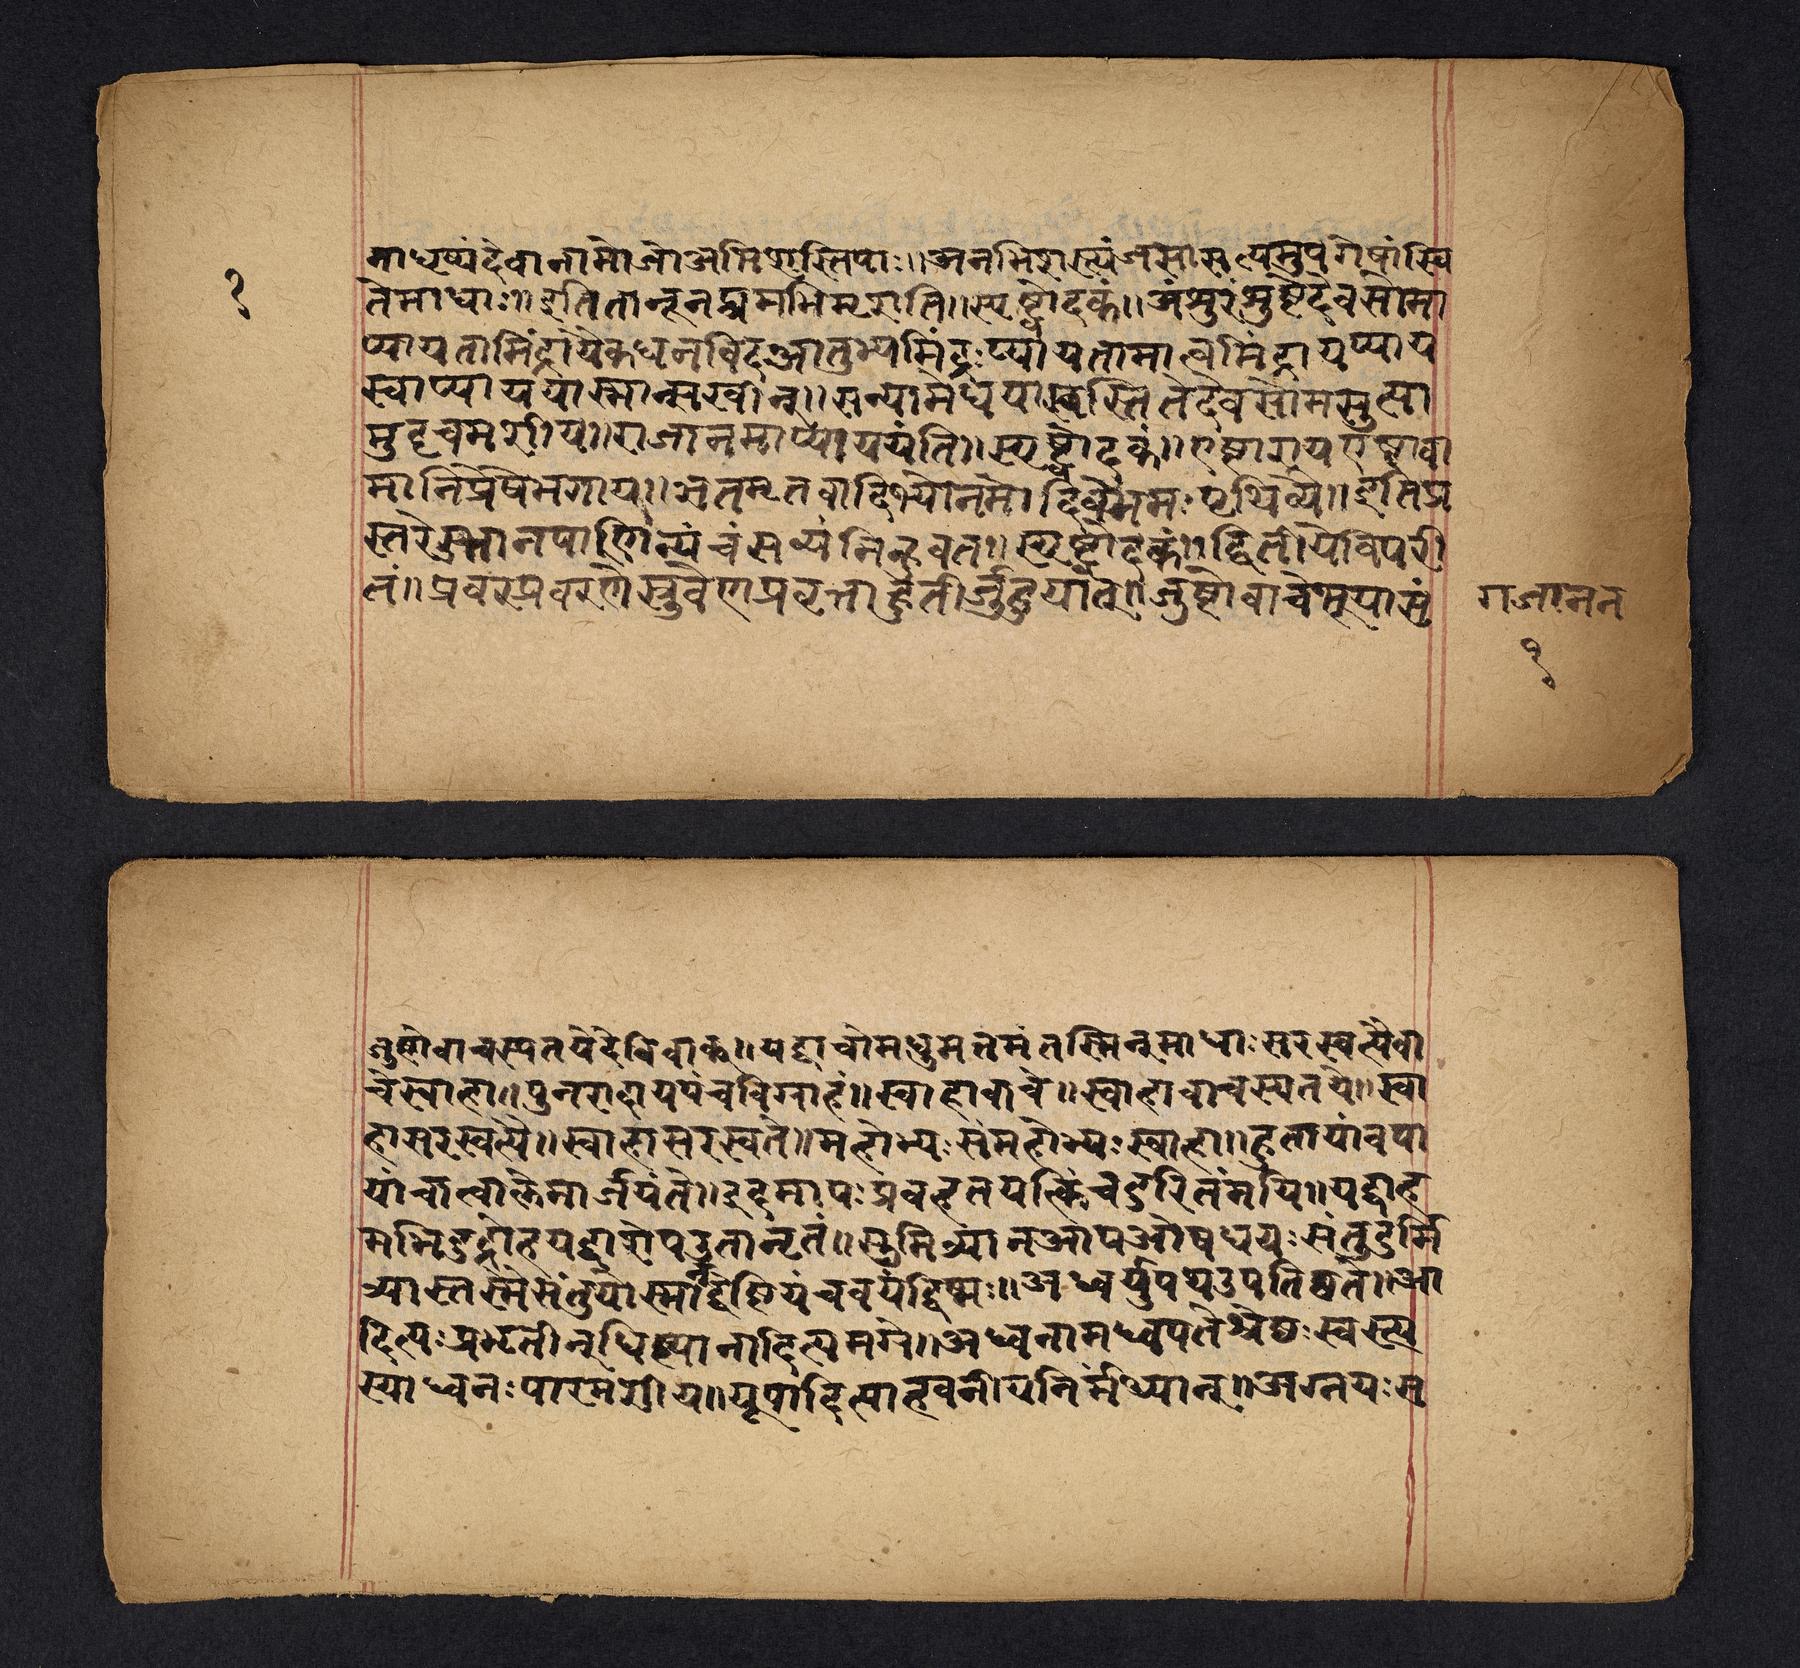 १
नाधृष्यंदेवानामोजोअभिशस्तिपाः॥अनभिशस्त्यंजसासत्यमुपगेषांस्वि
तेमाधाः॥इतितानूनप्त्रमभिमृशंति॥स्पृष्ट्वोदकं॥अंशुरंशुष्टेदेवसोमा
प्यायतामिंद्रायैकधनविदआतुभ्यमिंद्रःप्यायतामात्वमिंद्रायप्याय
स्वाप्याययास्मान्सखीन्॥सन्यामेधयास्वस्तितेदेवसोमसुत्या
मुदृचमशीय॥राजानमाप्याययंति॥स्पृष्ट्वोदकं॥एष्टारायएष्टावा
मानिप्रेषेभगाय॥ऋतमृतवादिभ्योनमोदिवेनमःपृथिव्यै॥इतिप्र
स्तरे पाणीन्यंचंसव्यंनिन्हवत॥स्पृष्ट्वोदकं॥द्वितीयेविपरी
तं॥प्रवरप्रवरणेस्रुवेणप्रवृत्ताहुतीर्जुहुयात्॥जुष्टोवाचेभूयासं
गजानन
१
जुष्टोवाचस्पतयेदेविवाक्॥यद्वाचोमधुमत्तमंतस्मिन्माधाःसरस्वत्यैवा
चेस्वाहा॥पुनरादायपंचविग्राहं॥स्वाहावाचे॥स्वाहावाचस्पतये॥स्वा
हासरस्वत्यै॥स्वाहासरस्वते॥महोभ्यःसंमहोभ्यःस्वाहा॥हुतायांवपा
यांचात्वालेमार्जयंते॥इदमापःप्रवहतयत्किंचदुरितंमयि॥यद्वाह
मभिदुद्रोहयद्वाशेपउतानृतं॥सुमित्र्यानआपओषधयःसंतुदुर्मि
त्र्यास्तस्मैसंतुयोस्मान्द्वेष्टियंचवयंद्विष्मः॥अध्वर्युपथउपतिष्ठते॥आ
दित्यःप्रभृतीन्धिष्ण्यानादित्यमग्रे॥अध्वनामध्वपतेश्रेष्ठःस्वस्त्य
स्याध्वनःपारमशीय॥यूपादित्याहवनीयनिर्मंथ्यान्॥अग्नयःस